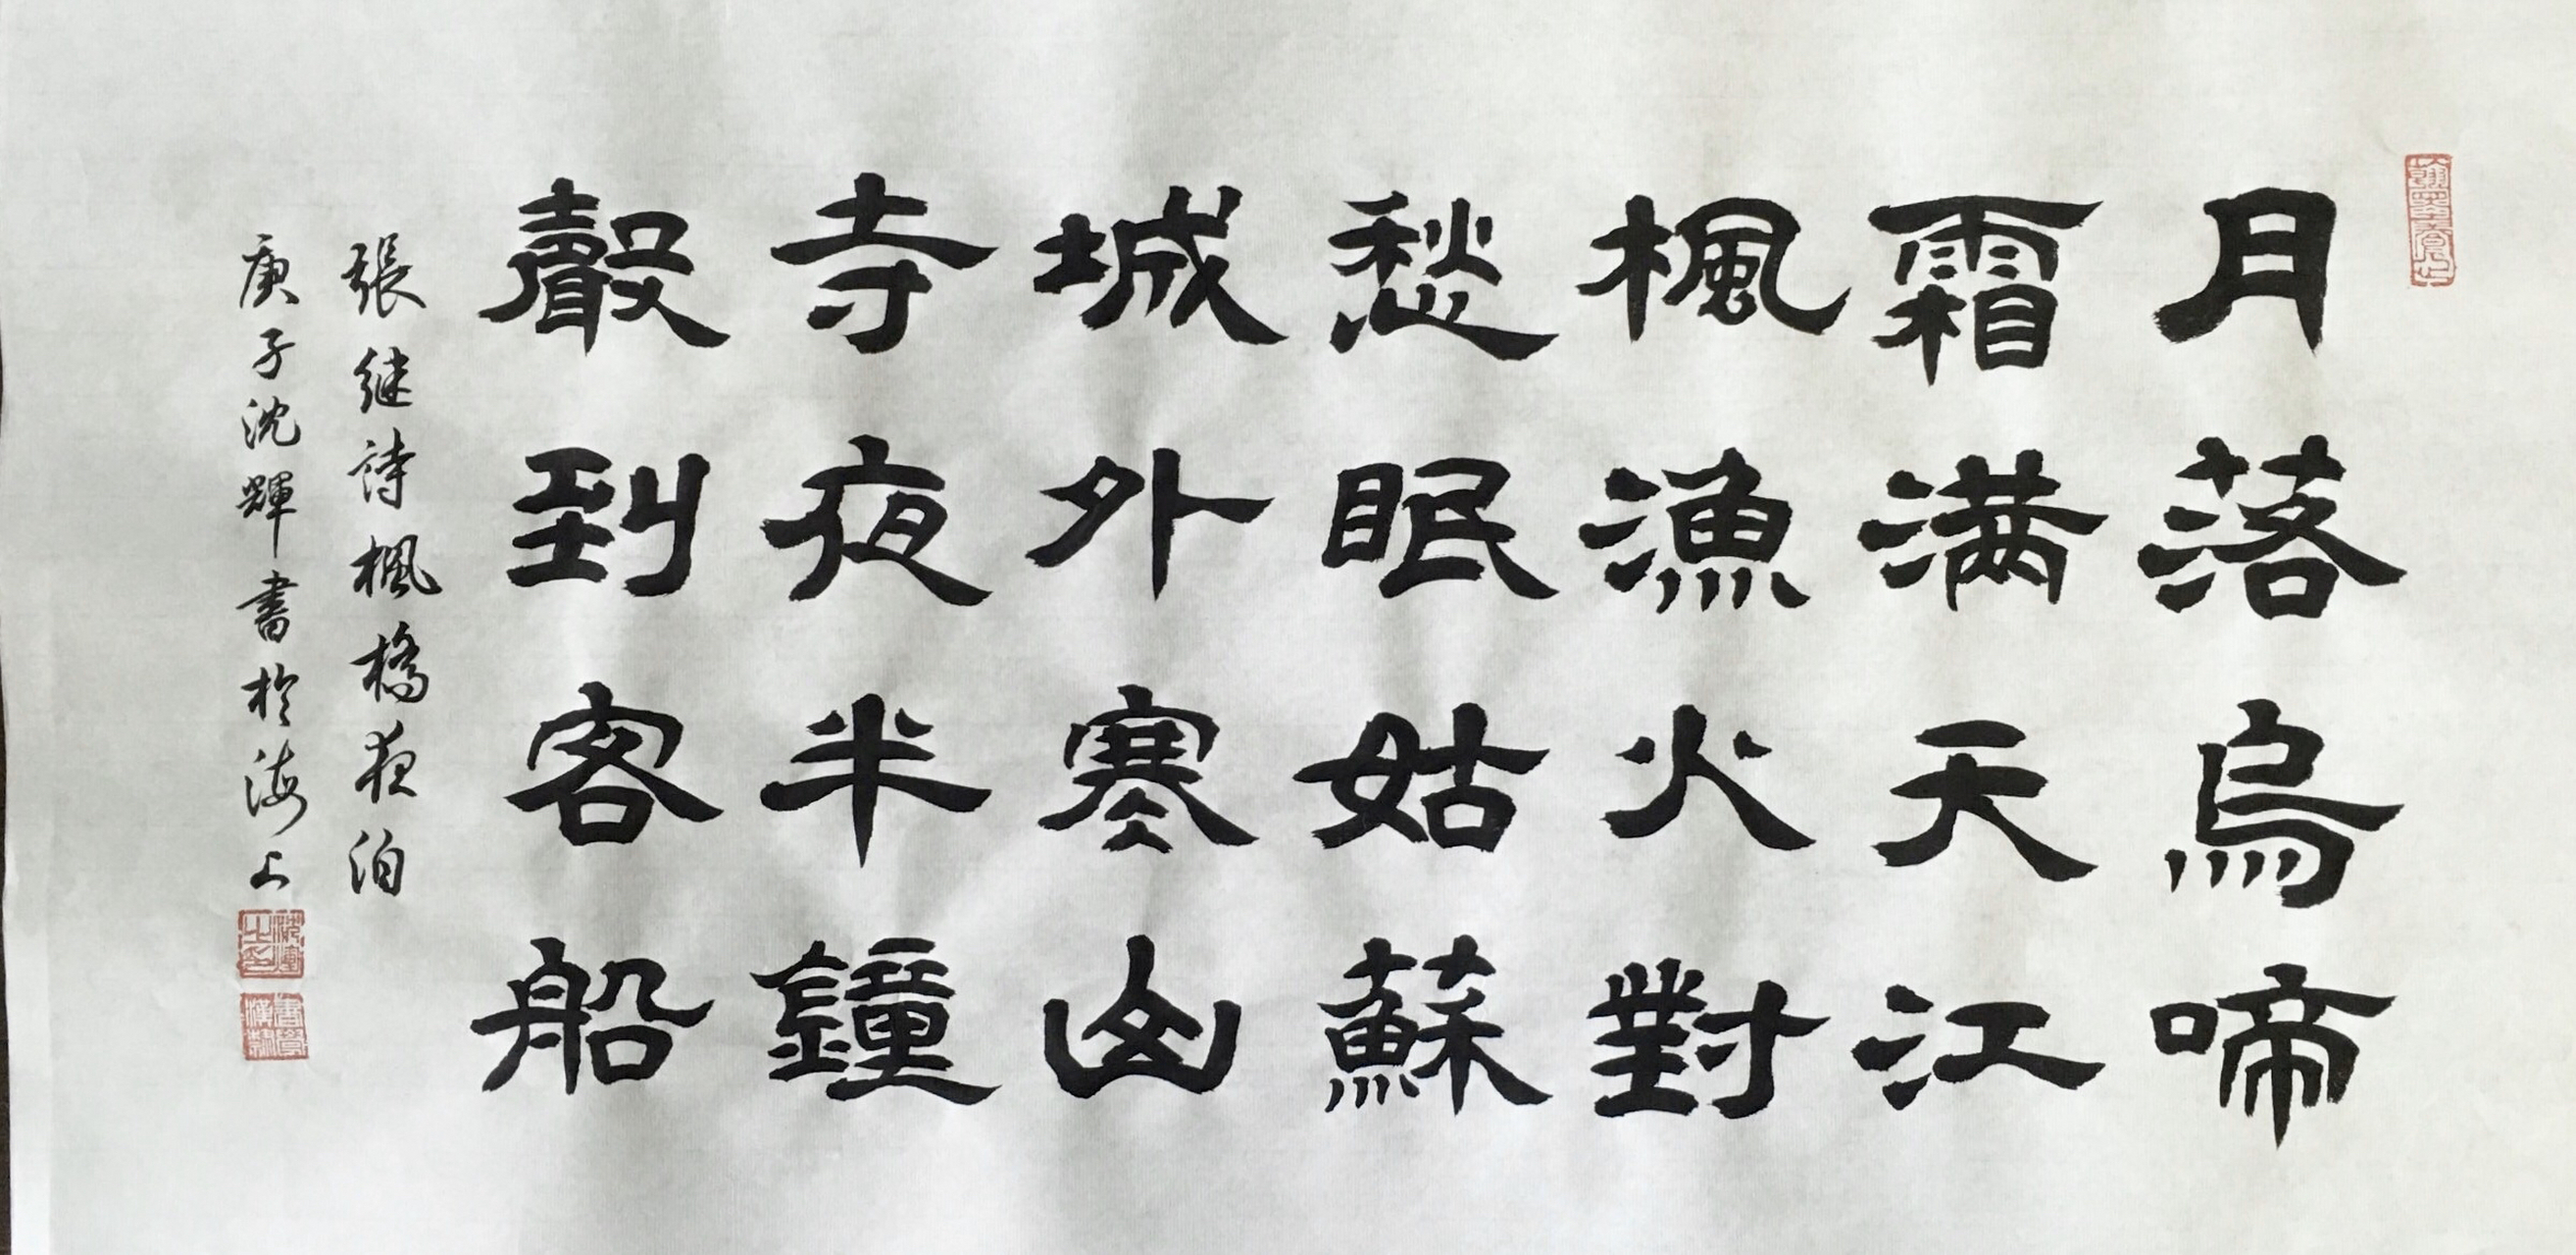 月落烏啼
霜满天江
楓漁火對
愁眠姑蘇
城外寒山
寺夜半鐘
聲到客船
張継詩楓橋夜泊
庚子沈輝書於海上